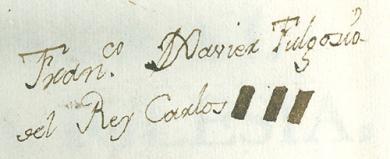 Fran.co Xavier Fulgosio
del Rey Carlos III